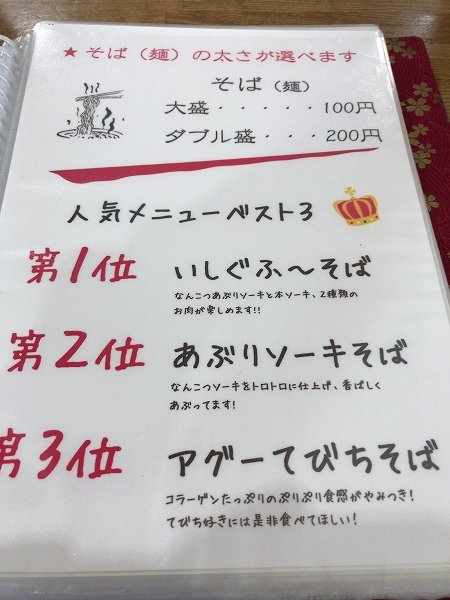 ★そば（麺）の太さが選べます
そば（麺）
大盛・・・・・100円
ダブル盛・・・200円
人気メニューベスト3
第1位 いしぐふ～そば
なんこつあぶりソーキと本ソーキ、2種類の
お肉が楽しめます!!
第2位 あぶりソーキそば
なんこつソーキをトロトロに仕上げ、香ばしく
あぶってます!
第3位 アグーてびちそば
コラーゲンたっぷりのぷりぷり食感がやみつき!
てびち好きには是非食べてほしい!